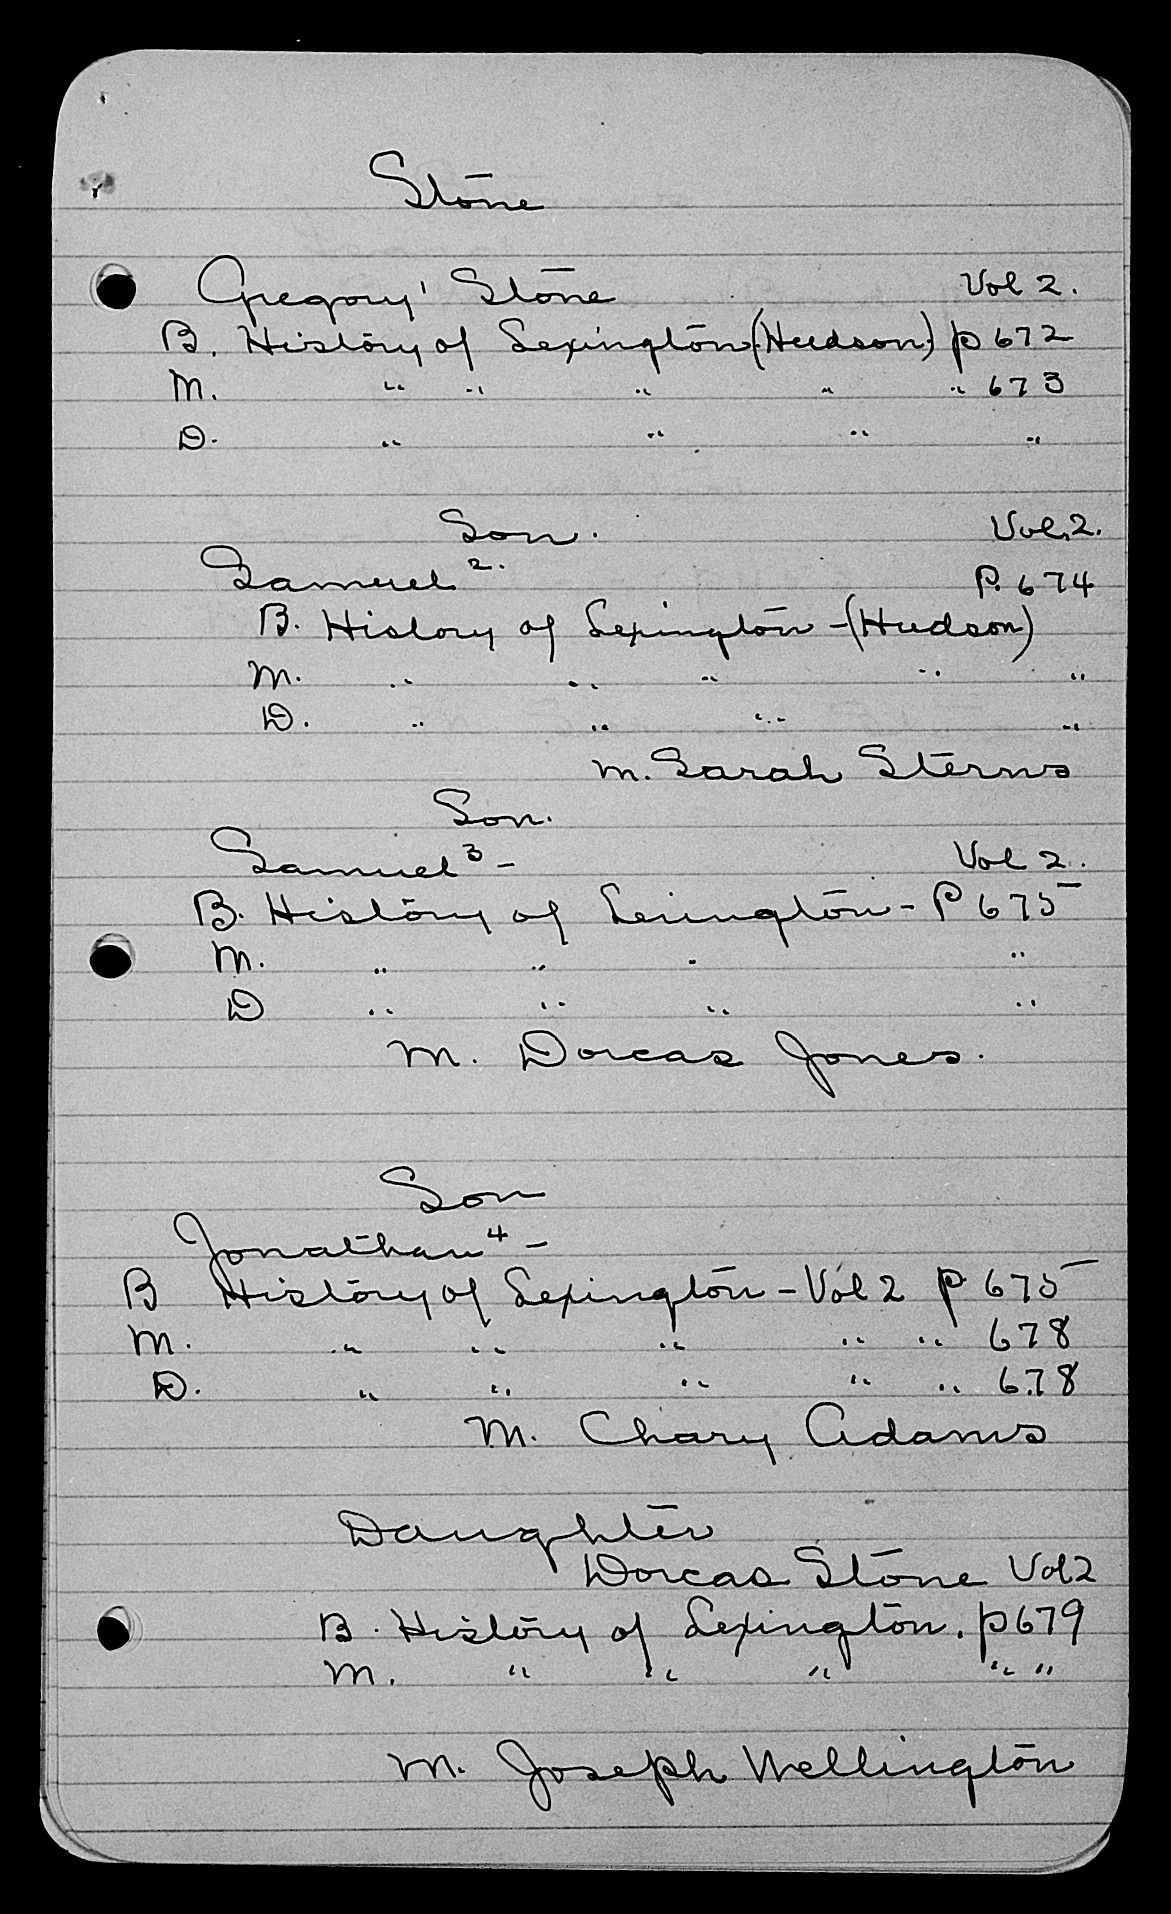 Stone
Gregory¹ Stone Vol 2.
B. History of Lexington (Hudson) p 672
M. " " " " " 673
D. " " " "
Son. Vol. 2.
Samuel ². P. 674
B. History of Lexington - (Hudson)
M. " " " " "
D. " " " "
m. Sarah Sterns
Son.
Samuel ³ - Vol 2.
B. History of Lexington - P 675
M. " " " "
D " " " "
M. Dorcas Jones.
Son
Jonathan ⁴ -
B History of Lexington - Vol 2 p 675
M. " " " " " 678
D. " " " " " 678
M. Chary Adams
Daughter
Dorcas Stone Vol 2
B. History of Lexington. p 679
M. " " " " "
M. Joseph Wellington